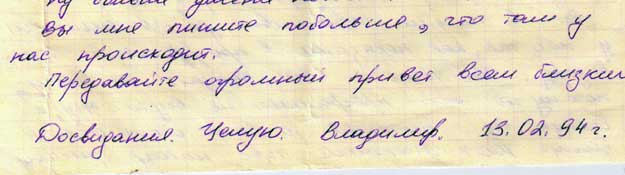 Вы мне пишите побольше, что там у
нас происходит.
Передавайте огромный привет всем близким
Досвидания. Целую. Владимир. 13.02.94г.